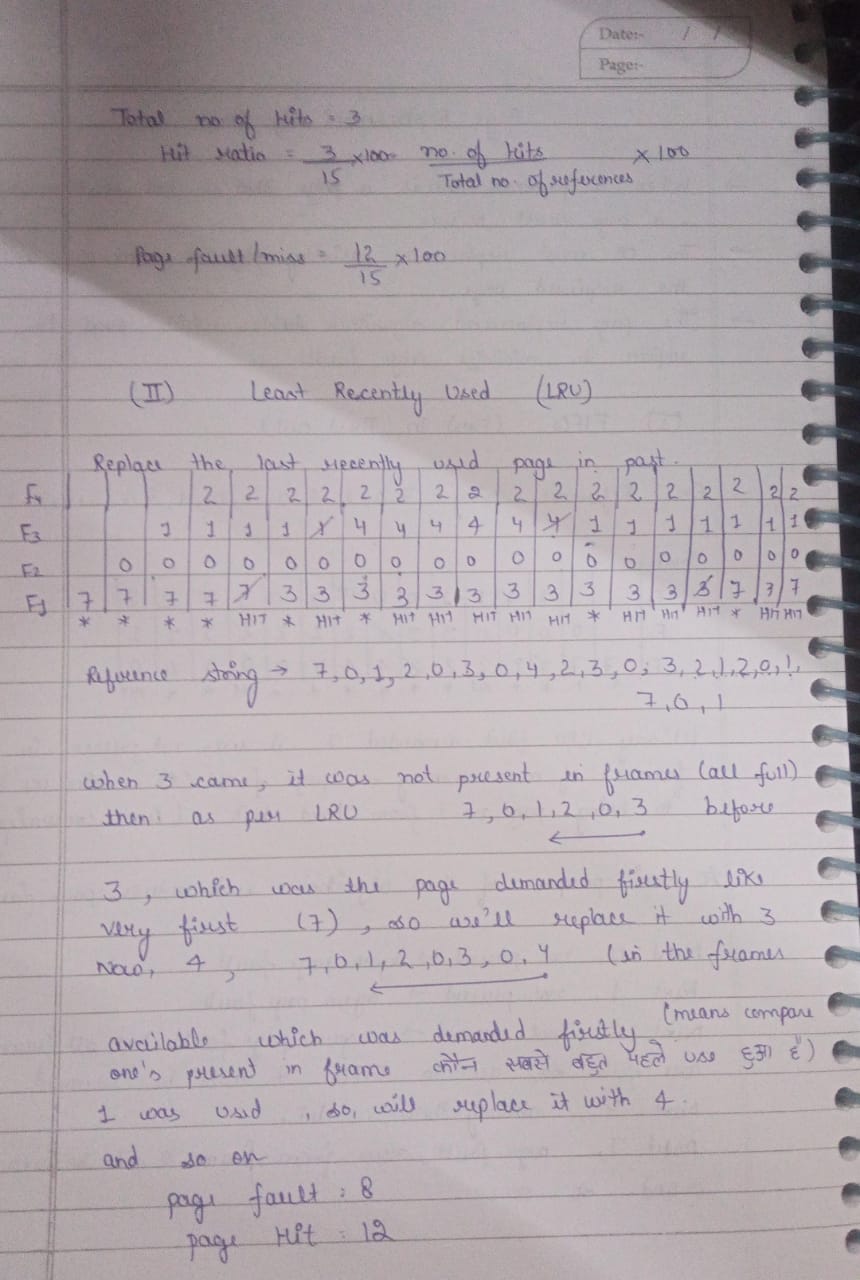 Date:- / /
Page:-
Total no. of Hits = 3
Hit ratio = 3/15 x100 no. of hits / Total no. of references x 100
Page fault/miss = 12/15 x 100
(II) Least Recently Used (LRU)
Replace the last recently used page in past.
F4 2 2 2 2 2 2 2 2 2 2 2 2 2 2 2 2 2
F3 1 1 1 1 1 4 4 4 4 4 4 1 1 1 1 1 1 1
F2 0 0 0 0 0 0 0 0 0 0 0 0 0 0 0 0 0 0 0
F1 7 7 7 7 7 3 3 3 3 3 3 3 3 3 3 3 3 7 7 7
* * * * HIT * HIT * HIT HIT HIT HIT HIT * HIT HIT HIT * HIT HIT
Reference string → 7,0,1,2,0,3,0,4,2,3,0,3,2,1,2,0,1,
7,0,1
when 3 came, it was not present in frames (all full)
then as per LRU 7,0,1,2,0,3 before
3, which was the page demanded firstly like
very first (7), so we'll replace it with 3
Now, 4, 7,0,1,2,0,3,0,4 (in the frames
available which was demanded firstly (means compare
one's present in frame कौन सबसे बहुत पहले use हुआ है)
1 was used, so, will replace it with 4.
and so on
page fault : 8
page Hit : 12